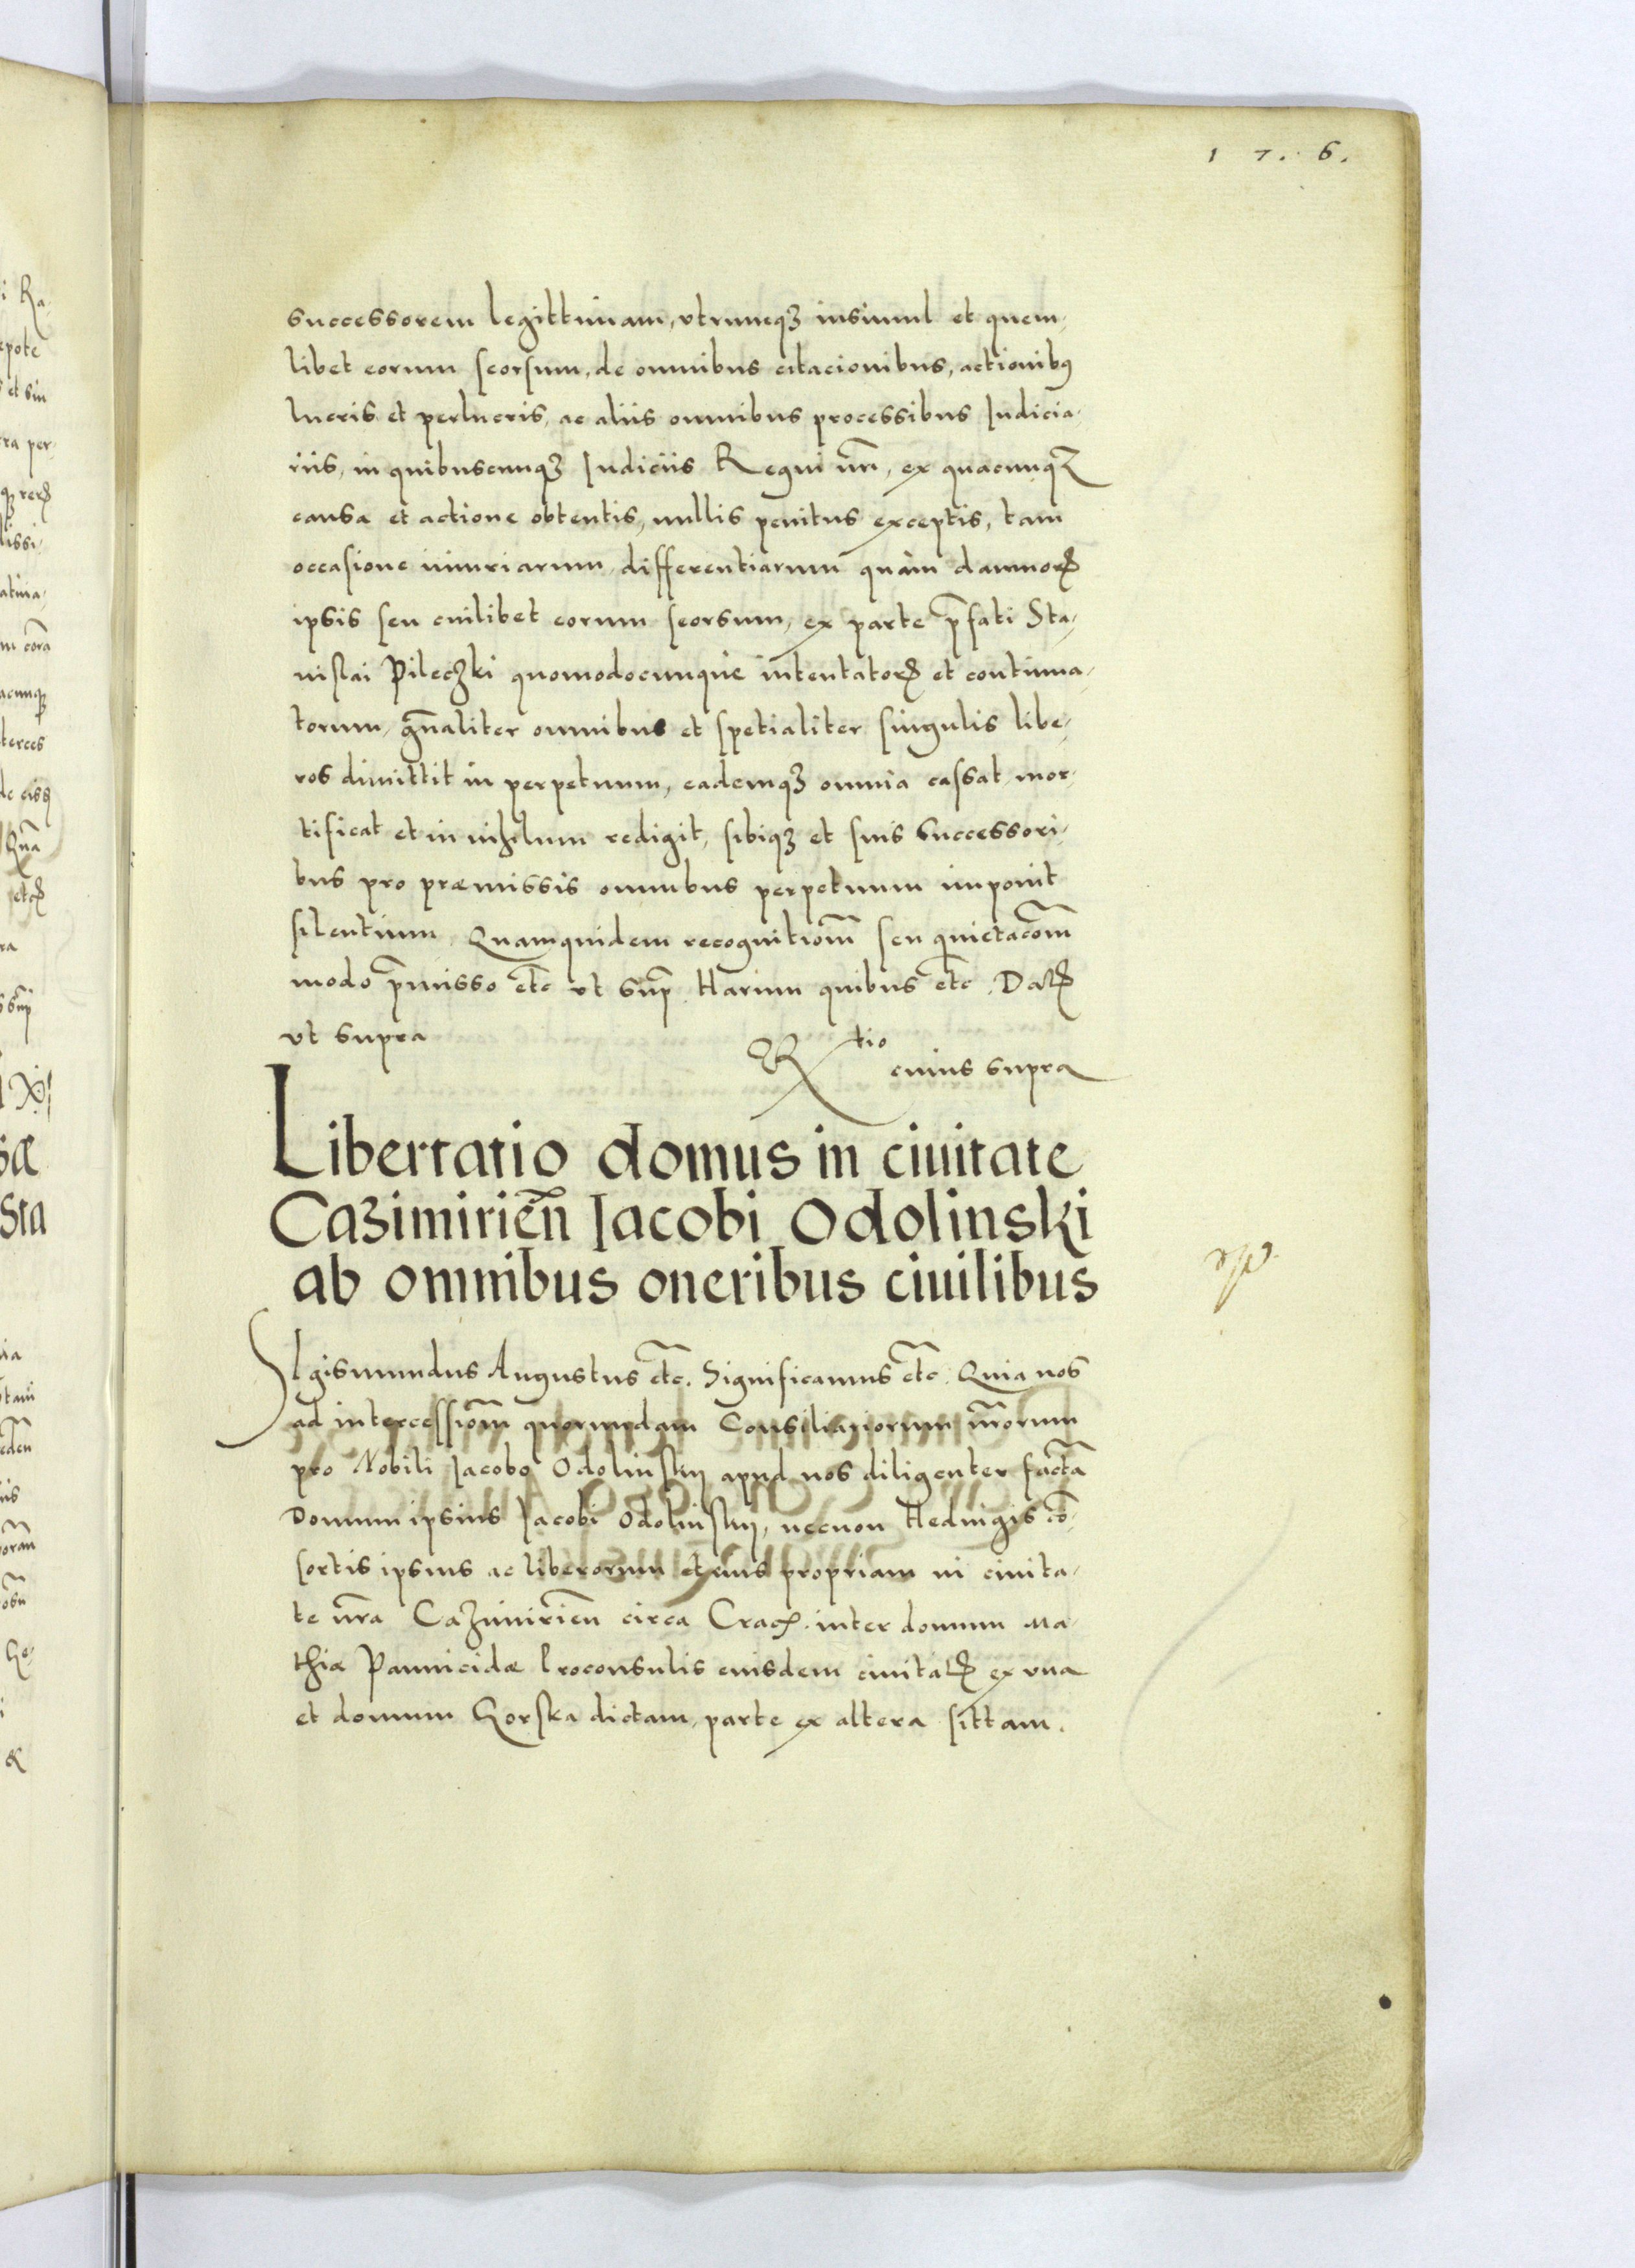 1 7. 6.
successorem legittimam, vtrumqꝫ insimul et quem,
libet eorum seorsum, de omnibus citacionibus, actionibꝰ
lucris et perlucris, ac aliis omnibus processibus Iudicia,
riis, in quibuscunqꝫ Iudiciis Regni nr̃i, ex quacunqꝫ
causa et actione obtentis, nullis penitus exceptis, tam
occasione iniuriarum, differentiarum quàm damnorꝝ
ipsis seu cuilibet eorum seorsum, ex parte p̃fati Sta,
nislai Pileczki quomodocunque intentatorꝝ et continua,
torum, gn̄aliter omnibus et spetialiter singulis libe,
ros dimittit in perpetuum, eademqꝫ omnia cassat, mor,
tificat et in nihilum redigit, sibiqꝫ et suis successori,
bus pro præmissis omnibus perpetuum imponit
silentium, Quamquidem recognitiom̃ seu quietacom̃
modo p̃misso etc̃ vt sup̃. Harum quibus etc̃. Datꝝ
vt supra
Rtio
cuius supra
Libertatio domus in ciuitate
Cazimirień Iacobi Odolinski
ab omnibus oneribus ciuilibus
SIgismundus Augustus etc̃. Significamus etc̃. Quia nos
ad intercessiom̃ quorundam Consiliariorum nr̃orum
pro Nobili Iacobo Odolinskij apud nos diligenter factã
Domum ipsius Iacobi Odolinskij, necnon Hedwigis cõ,
sortis ipsius ac liberorum et eius propriam in ciuita,
te nr̃a Cazimirieñ circa Cracꝭ. inter domum Ma,
thiæ Pannicidæ Proconsulis eiusdem ciuitatꝝ ex vna
et domum Gorska dictam, parte ex altera sittam.